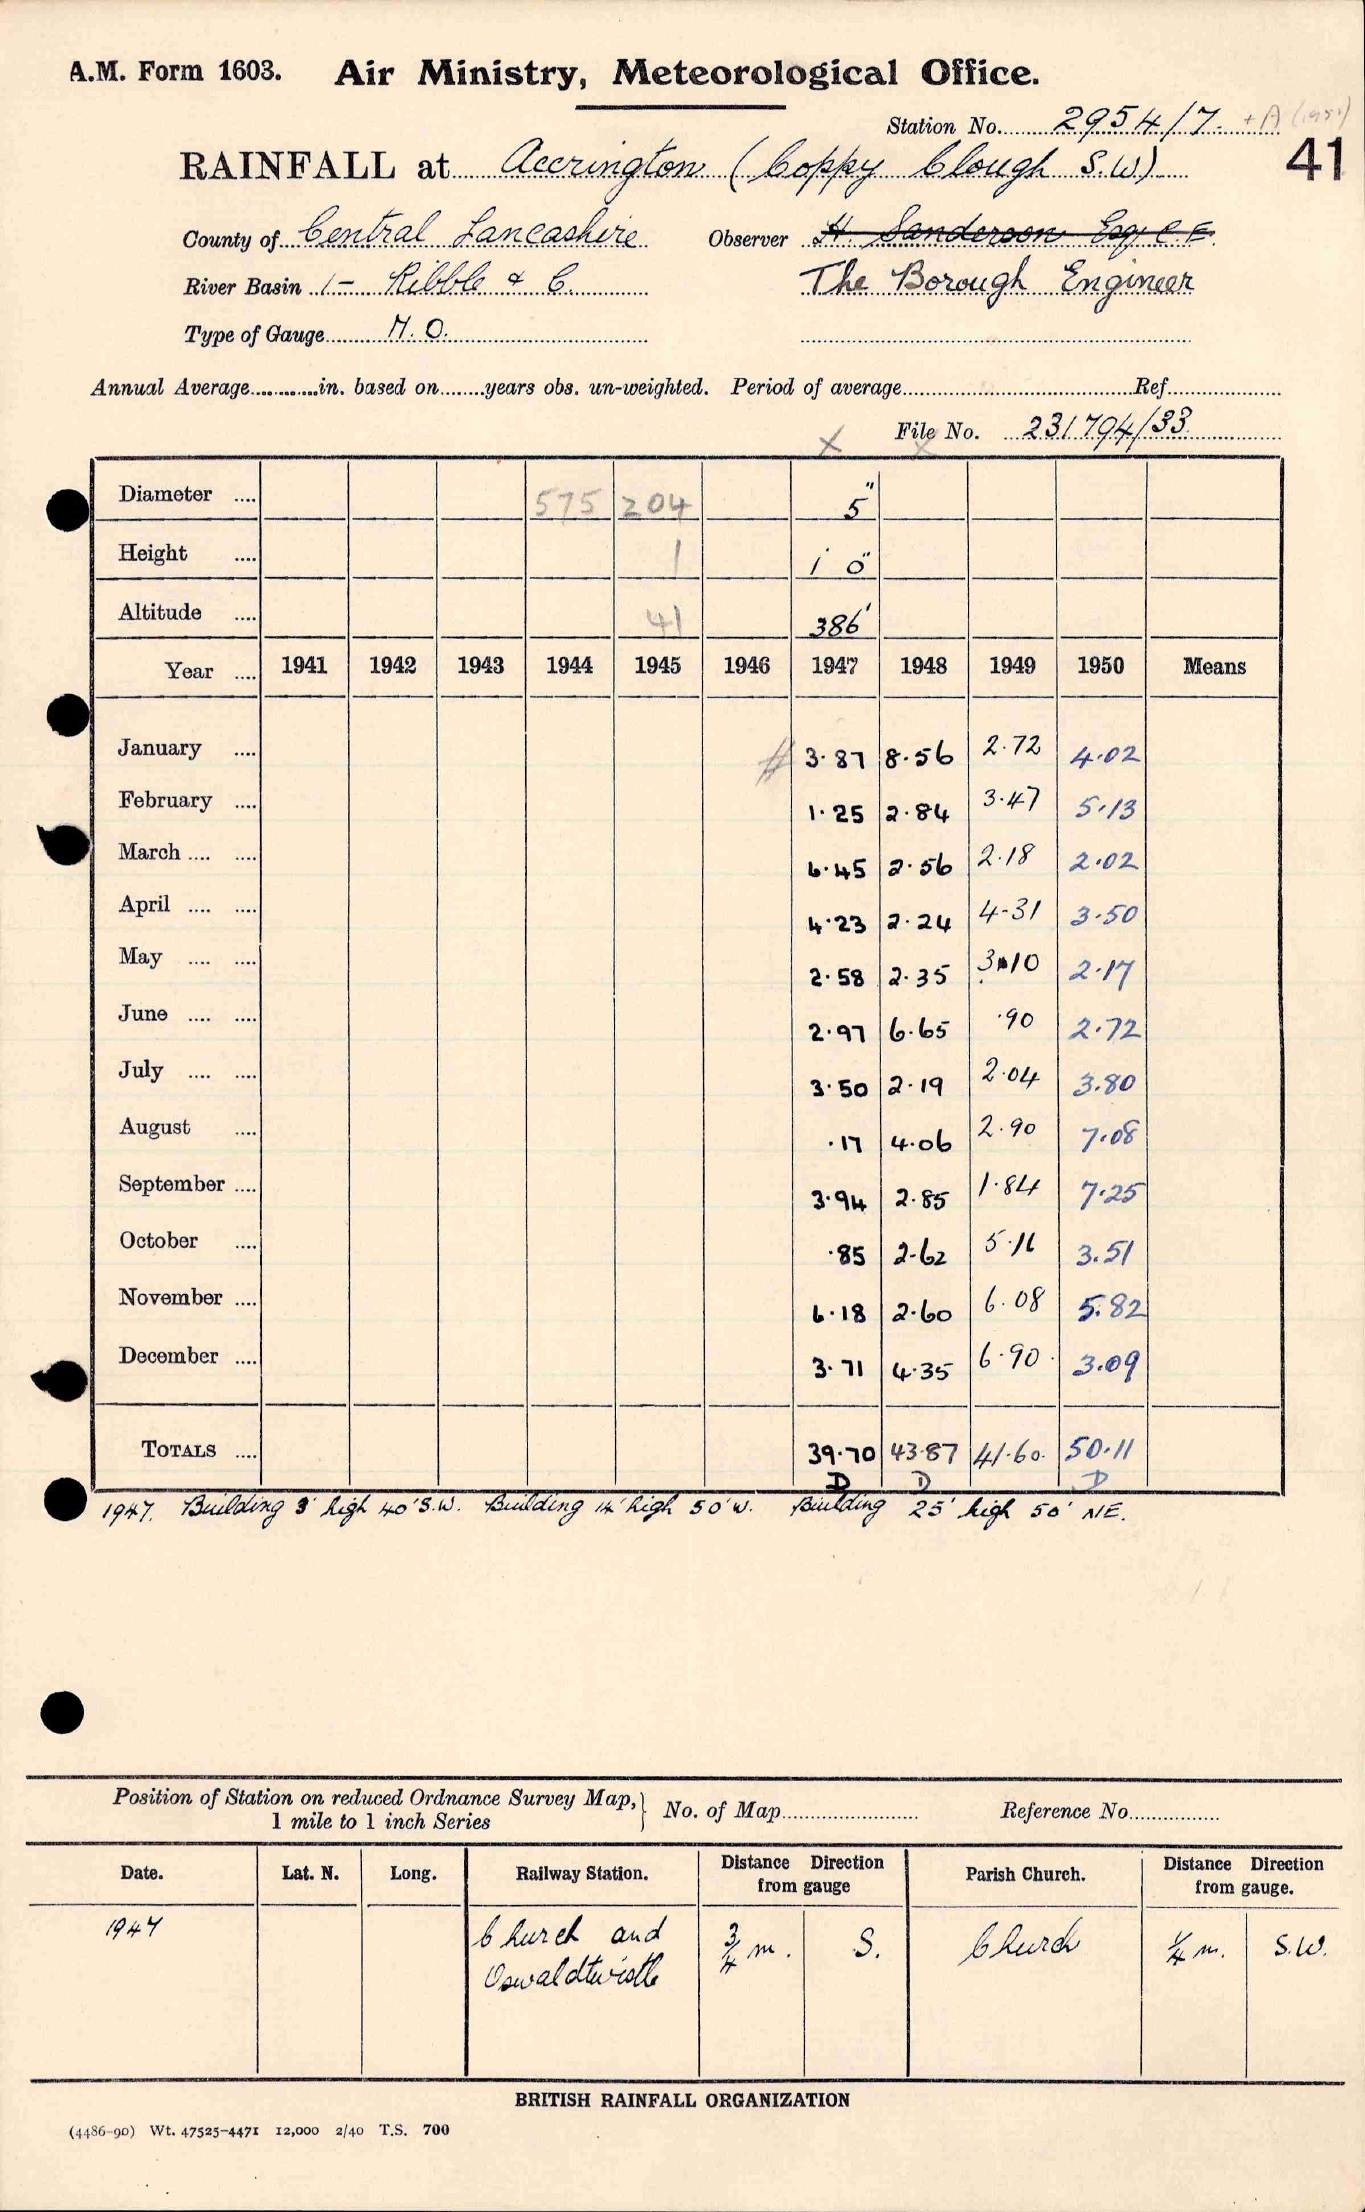 A.M. Form 1603. Air Ministry, Meteorological Office.
Station No. 2954/7. + A (1951)
41
RAINFALL at Accrington (Coppy Clough S.W)
County of Central Lancashire Observer H. Sanderson Esq. C.E.
River Basin 1- Ribble & C. The Borough Engineer
Type of Gauge M.O.
Annual Average in. based on years obs. un-weighted. Period of average Ref
File No. 231794/33
X X
Diameter .... 575 204 5"
Height .... 1 1' 0"
Altitude .... 41 386'
Year .... 1941 1942 1943 1944 1945 1946 1947 1948 1949 1950 Means
January .... # 3.87 8.56 2.72 4.02
February .... 1.25 2.84 3.47 5.13
March .... .... 6.45 2.56 2.18 2.02
April .... .... 4.23 2.24 4.31 3.50
May .... .... 2.58 2.35 3.10 2.17
June .... .... 2.97 6.65 .90 2.72
July .... .... 3.50 2.19 2.04 3.80
August .... .17 4.06 2.90 7.08
September .... 3.94 2.85 1.84 7.25
October .... .85 2.62 5.16 3.51
November .... 6.18 2.60 6.08 5.82
December .... 3.71 4.35 6.90 3.09
TOTALS .... 39.70 43.87 41.60 50.11
D D D
1947. Building 3' high 40' S.W. Building 14' high 50' W. Building 25' high 50' NE.
Position of Station on reduced Ordnance Survey Map, 1 mile to 1 inch Series } No. of Map Reference No.
Date. Lat. N. Long. Railway Station. Distance Direction from gauge Parish Church. Distance Direction from gauge.
1947 Church and Oswaldtwistle 3/4 m. S. Church 1/4 m. S.W.
BRITISH RAINFALL ORGANIZATION
(4486-90) Wt. 47525-4471 12,000 2/40 T.S. 700